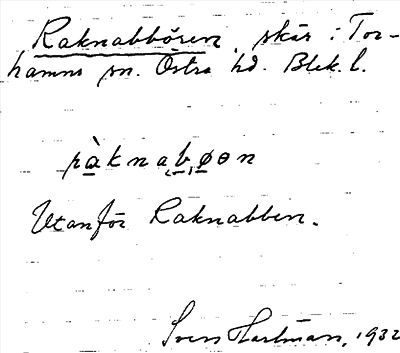 Raknabbören, skär i Tor-
hamns sn. Östra hd. Blek. l.
ràknabøən
Utanför Raknabben.
Sven Hartman, 1932